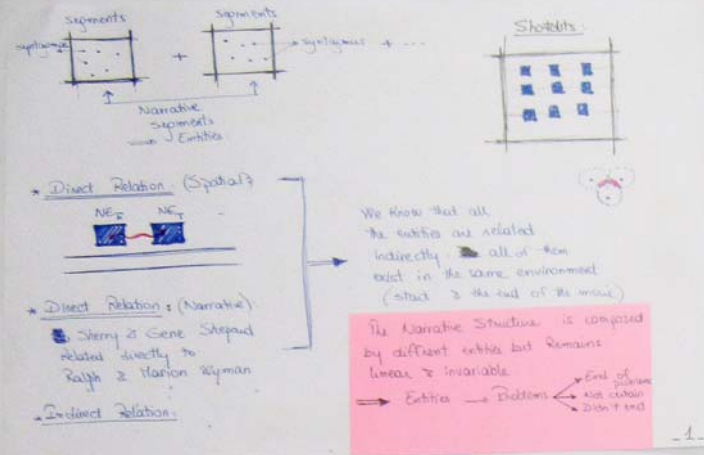 segments
segments
Shortcuts:
syntagmus
+
syntagmus + ...
Narrative
segments
→ Entities
* Direct Relation (Spatial)
NE
NE
* Direct Relation: (Narrative)
Sherry & Gene Shepard
related directly to
Ralph & Marion Wyman
* Indirect Relation:
We know that all
the entities are related
indirectly. all of them
exist in the same environment
(start & the end of the movie)
The Narrative Structure is composed
by different entities but Remains
linear & invariable
⇒ Entities → Problems
End of problem
Not certain
Didn't end
_1_